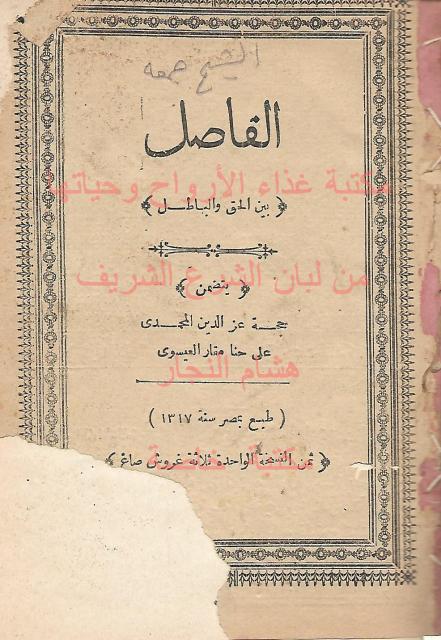 الشيخ جمعه
الفاصل
مكتبة غذاء الأرواح وحياتها
﴿ بين الحق والباطل ﴾
من لبان الشرع الشريف
﴿ يتضمن ﴾
حجة عز الدين المحمدى
على حنا مقار العيسوى
هشام النجار
( طبع بمصر سنة ١٣١٧ )
﴿ ثمن النسخة الواحدة ثلاثة غروش صاغ ﴾
مكتبة